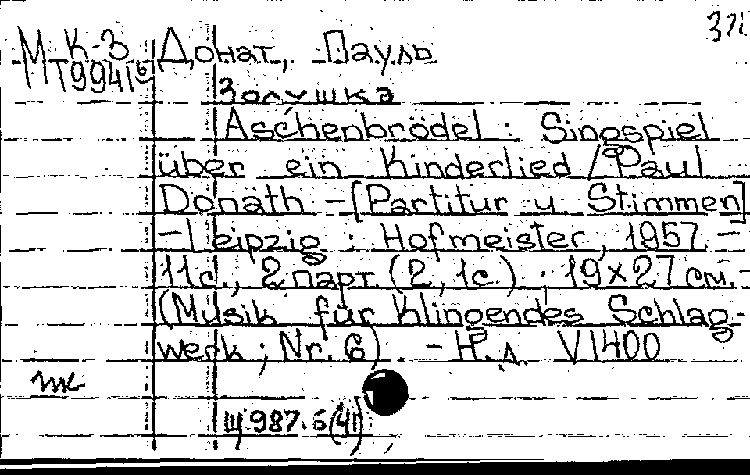 М К-3 Донат, Пауль
Т9941
Золушка
Aschenbrödel : Singspiel
über ein Kinderlied / Paul
Donath - [Partitur u Stimmen]
- Leipzig : Hofmeister, 1957. -
11с., 2 парт. (2, 1с.) ; 19×27 см. -
(Musik für klingendes Schlag-
werk ; Nr. 6). - Н. д. V 1400
Щ 987.6(4Г)